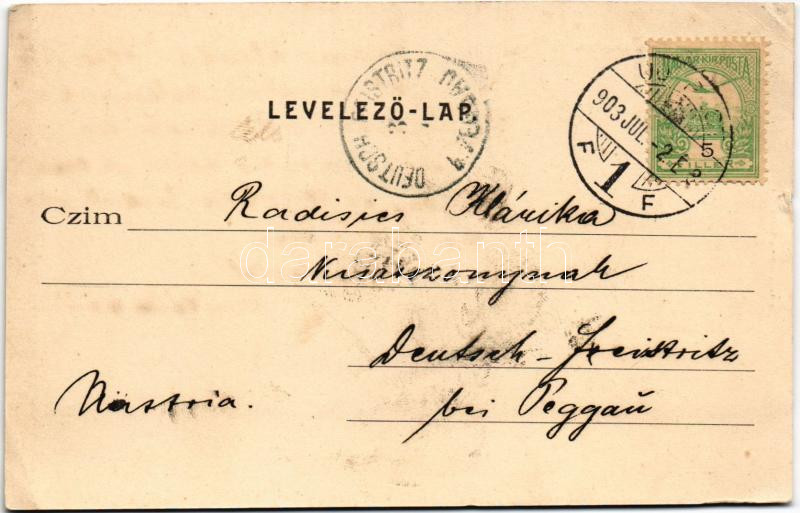 MAGYAR KIR. POSTA
5
903 JUL. -2. E
1
F F
DEUTSCH FEISTRITZ
LEVELEZŐ-LAP.
Czim Radisics Klárika
Kisasszonynak
Deutsch-Freistritz
bei Peggau
Austria.
darabanth